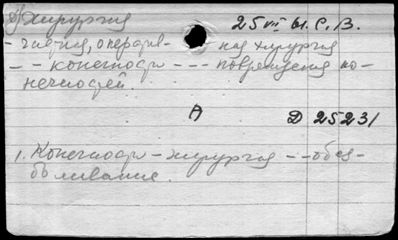 Хирургия 25 VII 61. С. В.
- частная, оператив- ная хирургия
- - конечности - - - повреждения ко-
нечностей.
А Д 25231
1. Конечности - хирургия - - обез-
боливание.